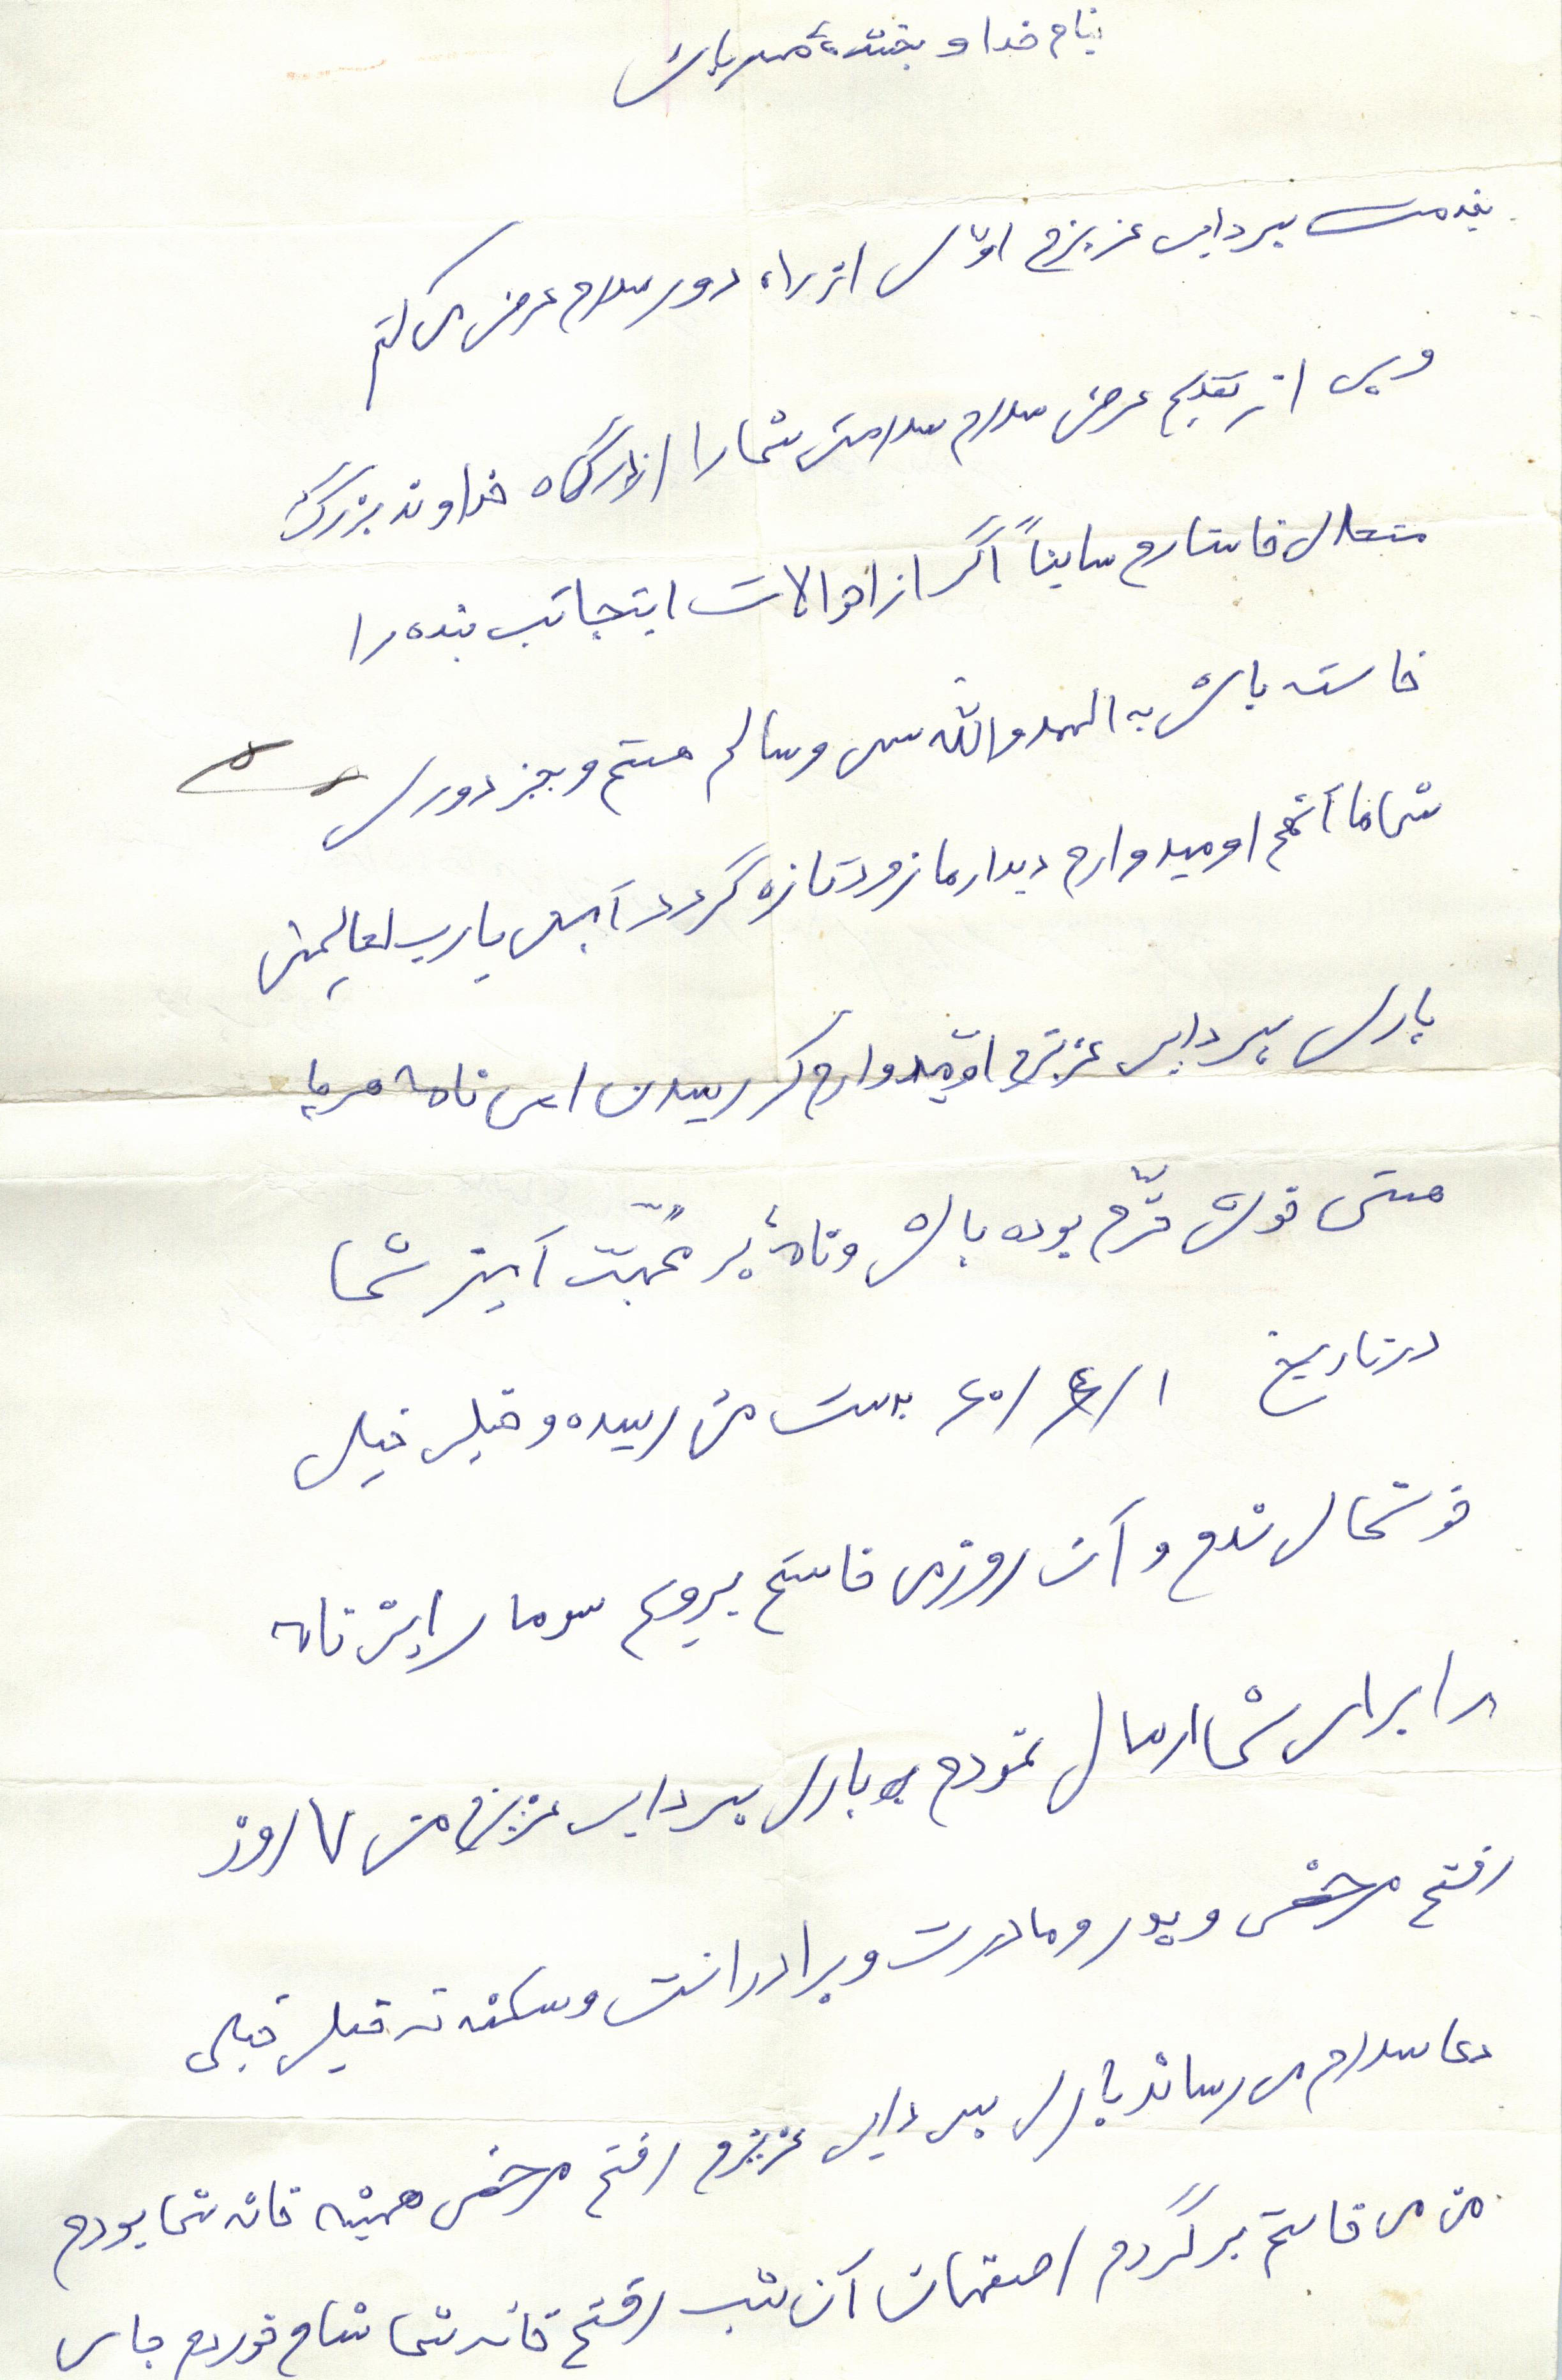 بنام خدا و بخشنده مهربان
بخدمت پسر دایی عزیزم اوّل از راه دور سلام عرض می کنم
و پس از تقدیم عرض سلام سلامتی شما را از درگاه خداوند بزرگ
متعال خاستارم سایناً اگر از احوالات اینجانب بنده را
خاسته باشی به الحمدوالله سر و سالم هستم و بجز دوری
شما ما آنهم اومیدوارم دیدار ما زود تازه گردد آمین یارب لعالمین
باری پسر دایی عزیزم اومیدوارم که رسیدن این نامه هر جا
هستی خوش خرّم بوده باشی و نامهٔ پر محبّت آمیز شما
در تاریخ ۶۰/۴/۱ بدست من رسیده و خیلی خیلی
خوشحال شدم و آن روز می خاستم بروم سومار این نامه
را برای شما ارسال نمودم باری پسر دایی عزیزم من ۷ روز
رفتم مرخصی و پدر و مادرت و برادرانت و سکنه نه خیلی خیلی
دعا سلام می رساند باری پسر دایی عزیزم رفتم مرخصی همیشه خانه شما بودم
من می خاستم برگردم اصفهان آن شب رفتم خانه شما شام خوردم جای